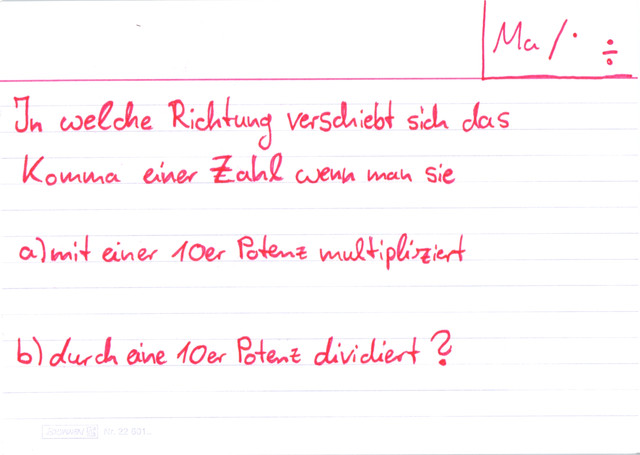 Ma / · ÷
In welche Richtung verschiebt sich das
Komma einer Zahl wenn man sie
a) mit einer 10er Potenz multipliziert
b) durch eine 10er Potenz dividiert?